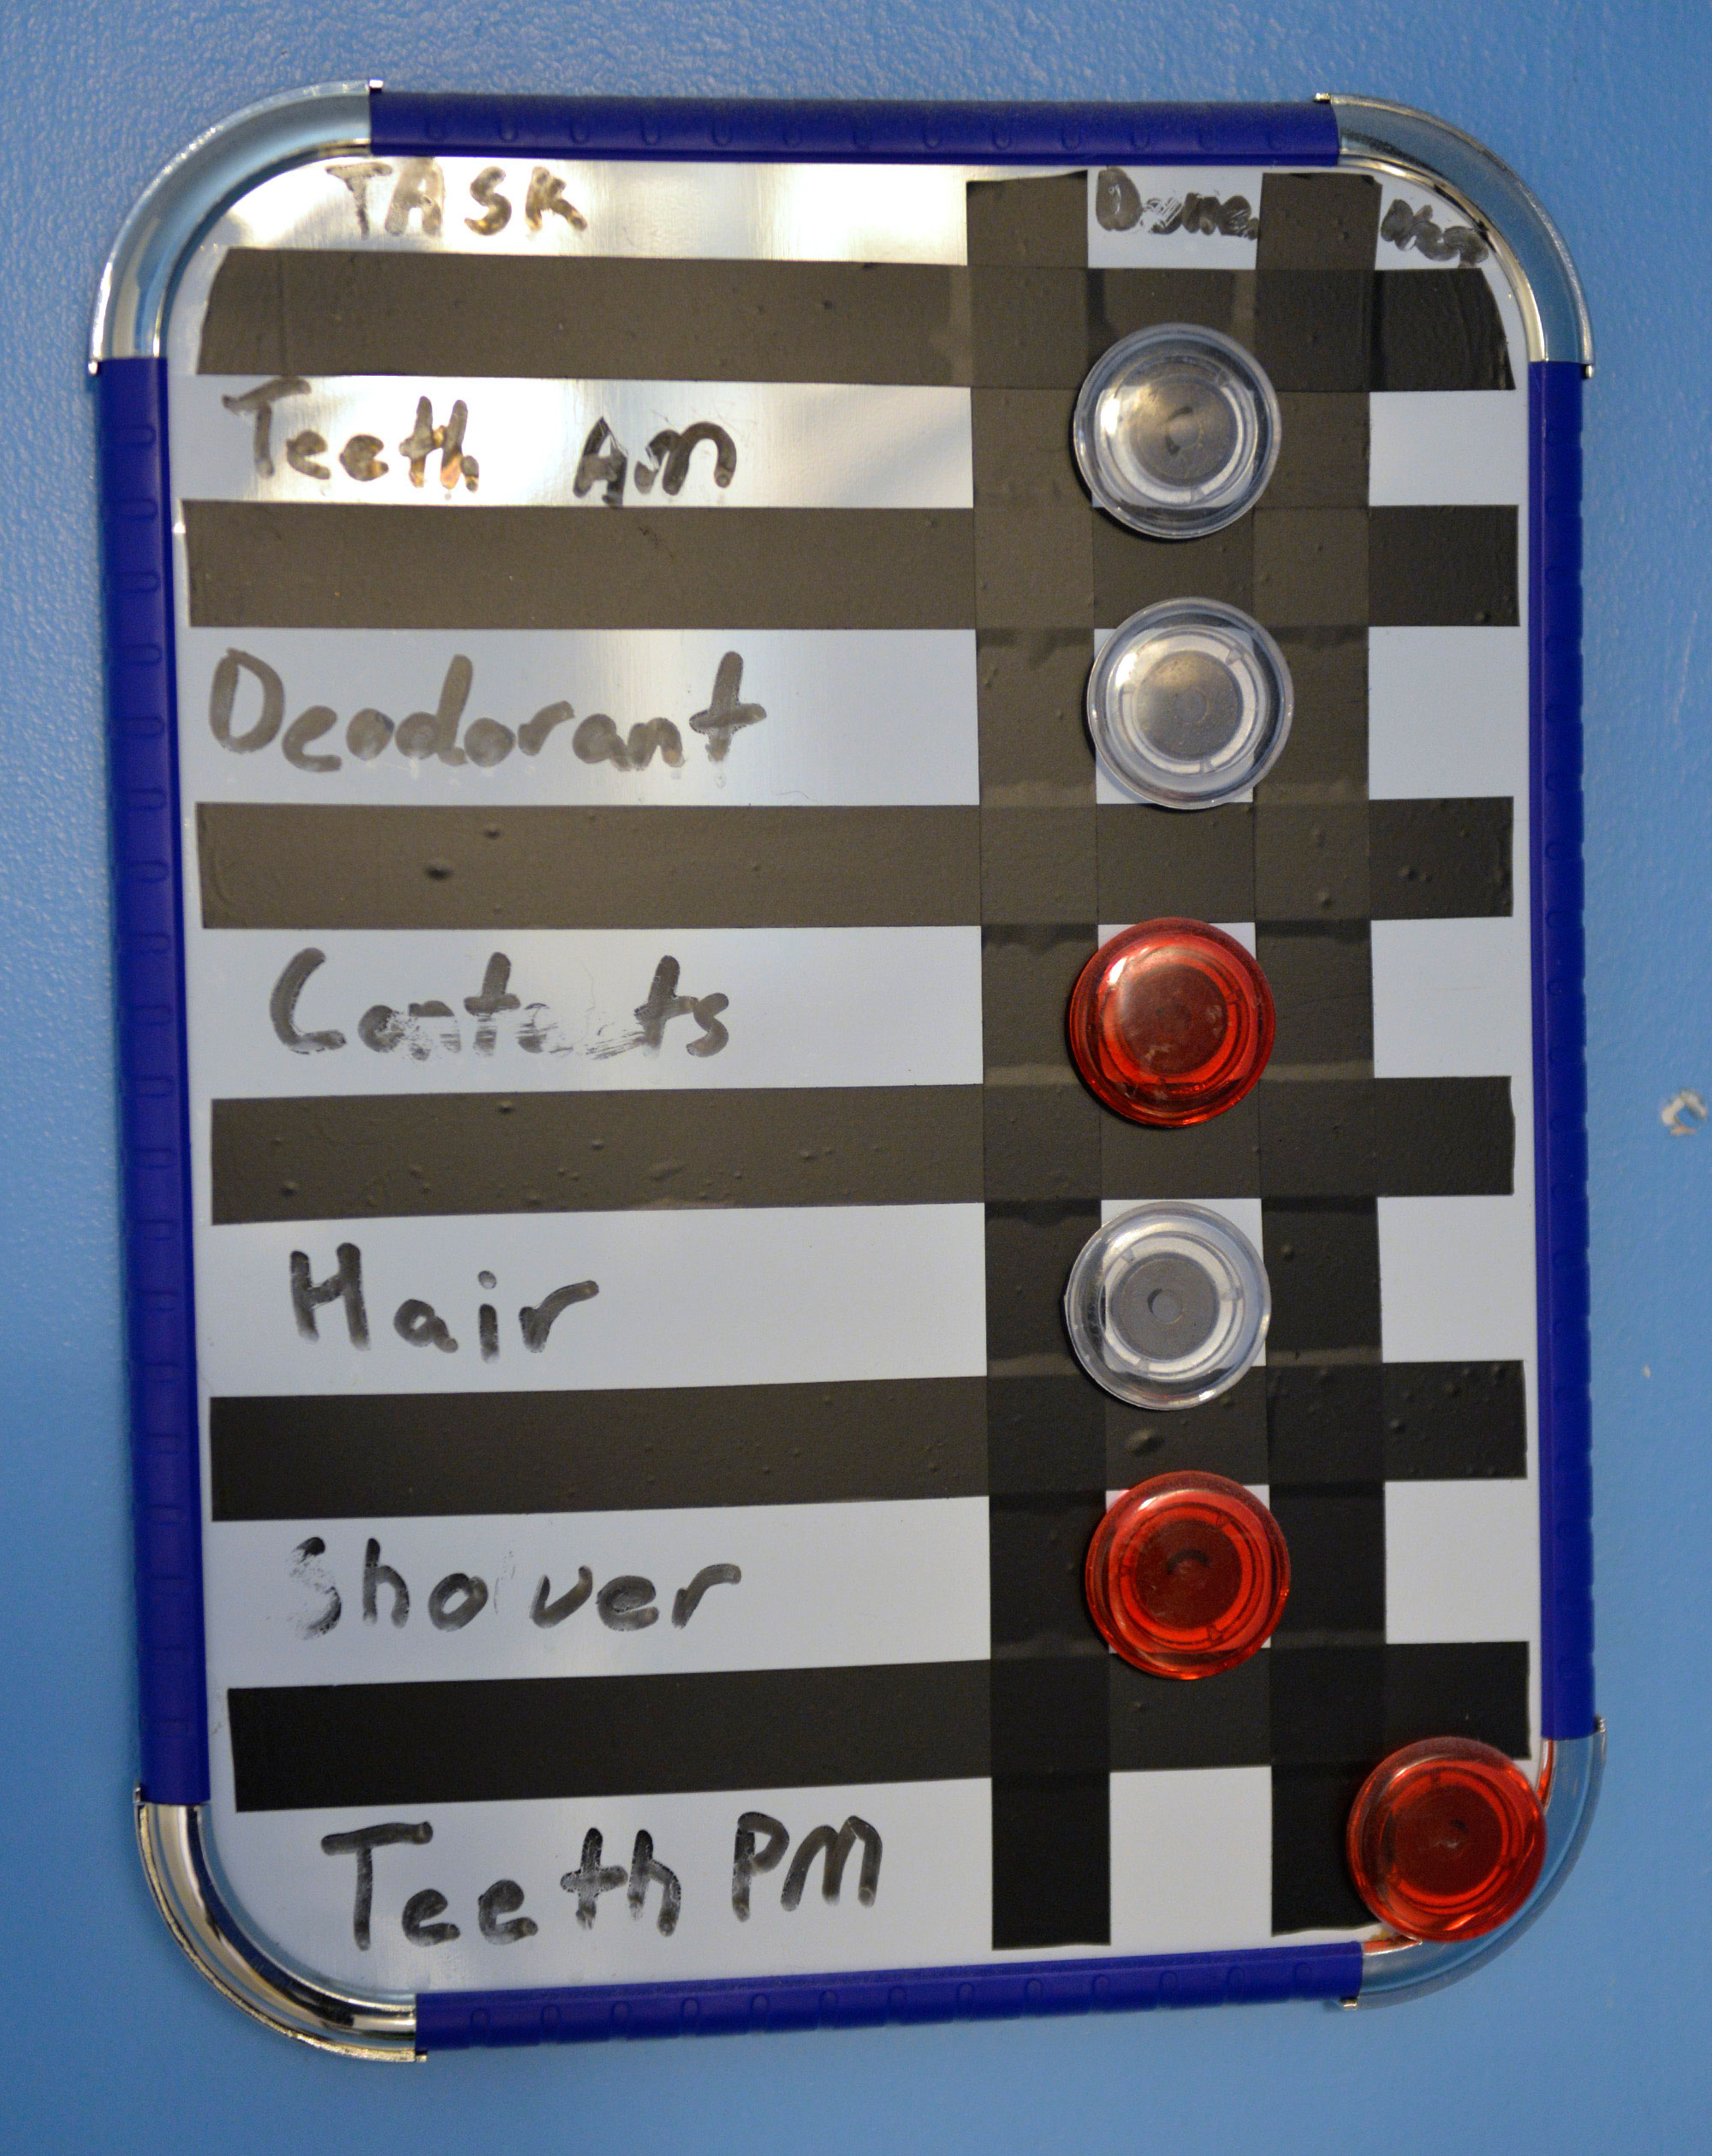 TASK Done
Teeth AM
Deodorant
Contacts
Hair
Shower
Teeth PM